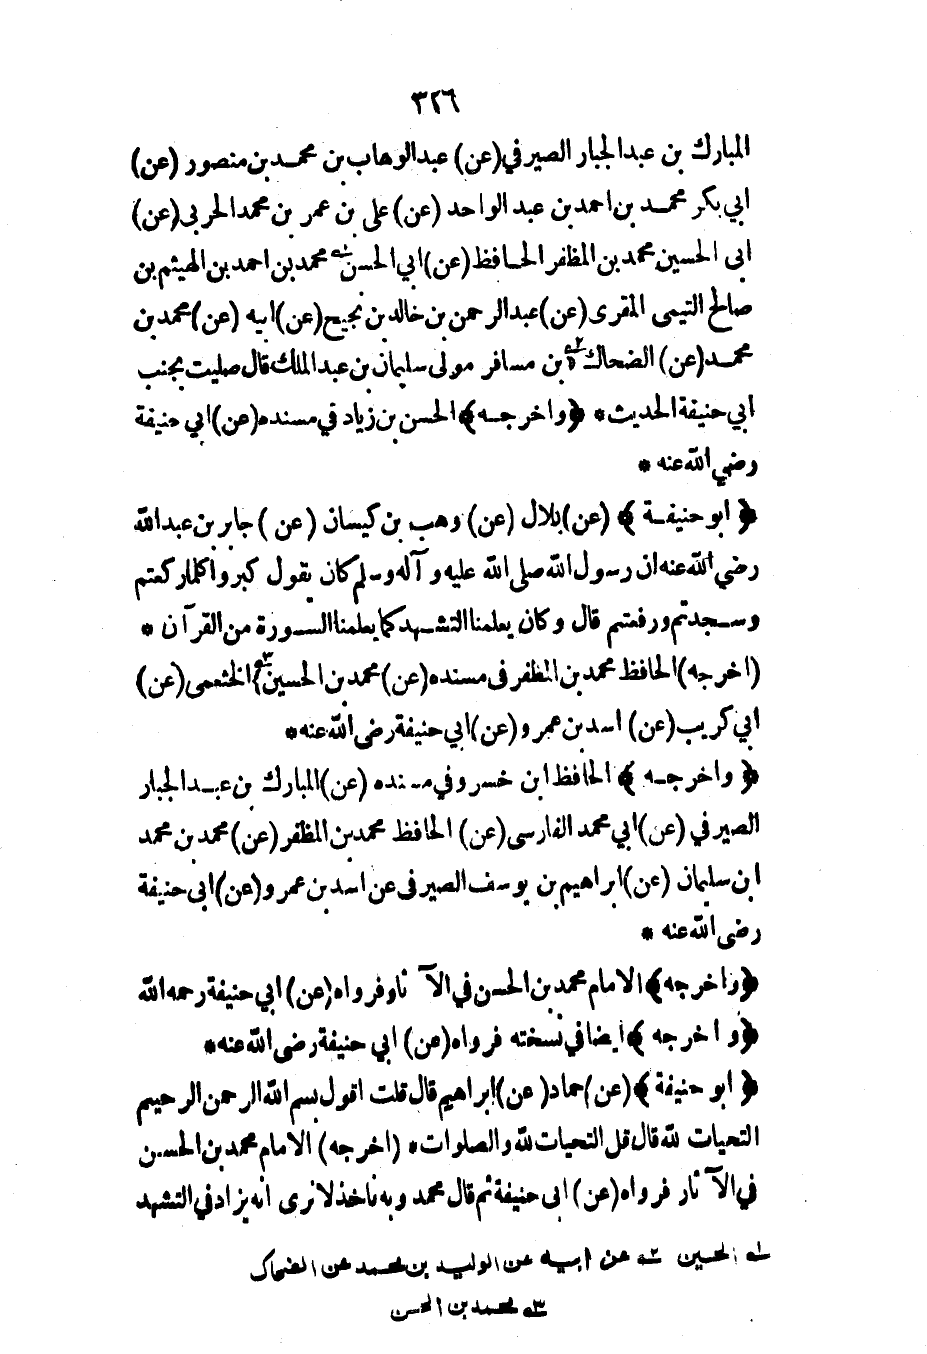 ٣٢٦
المبارك بن عبد الجبار الصير في (عن) عبد الوهاب بن محمد بن منصور (عن)
ابي بكر محمد بن احمد بن عبد الواحد (عن) علي بن عمر بن محمد الحربي (عن)
ابى الحسين محمد بن المظفر الحافظ (عن) ابي الحسن ١ محمد بن احمد بن الهيثم بن
صالح التيمى المقرى (عن) عبد الرحمن بن خالد بن نجيح (عن) ابيه (عن) محمد بن
محمد (عن) الضحاك ٢ بن مسافر مولى سليمان بن عبد الملك قال صليت بجنب
ابي حنيفة الحديث * ﴿واخرجه﴾ الحسن بن زياد في مسنده (عن) ابي حنيفة
رضي الله عنه *
﴿ابو حنيفة﴾ (عن) بلال (عن) وهب بن كيسان (عن) جابر بن عبد الله
رضي الله عنه ان رسول الله صلى الله عليه وآله وسلم كان يقول كبروا كلما ركعتم
وسجدتم ورفعتم قال وكان يعلمنا التشهد كما يعلمنا السورة من القرآن *
(اخرجه) الحافظ محمد بن المظفر فى مسنده (عن) محمد بن الحسين ٣ الخثعمى (عن)
ابي كريب (عن) اسد بن عمرو (عن) ابي حنيفة رضى الله عنه *
﴿واخرجه﴾ الحافظ ابن خسرو في مسنده (عن) المبارك بن عبد الجبار
الصير في (عن) ابي محمد الفارسى (عن) الحافظ محمد بن المظفر (عن) محمد بن محمد
ابن سليمان (عن) ابراهيم بن يوسف الصير فى عن اسد بن عمرو (عن) ابى حنيفة
رضى الله عنه *
﴿واخرجه﴾ الامام محمد بن الحسن في الآثار فرواه (عن) ابي حنيفة رحمه الله
﴿واخرجه﴾ ايضا في نسخته فرواه (عن) ابي حنيفة رضى الله عنه *
﴿ابو حنيفة﴾ (عن) حماد (عن) ابراهيم قال قلت اقول بسم الله الرحمن الرحيم
التحيات لله قال قل التحيات لله والصلوات * (اخرجه) الامام محمد بن الحسن
في الآثار فرواه (عن) ابى حنيفة ثم قال محمد وبه ناخذ لا نرى انه يزاد في التشهد
١ الحسين ٢ عن ابيه عن الوليد بن محمد عن الضحاك
٣ محمد بن الحسن